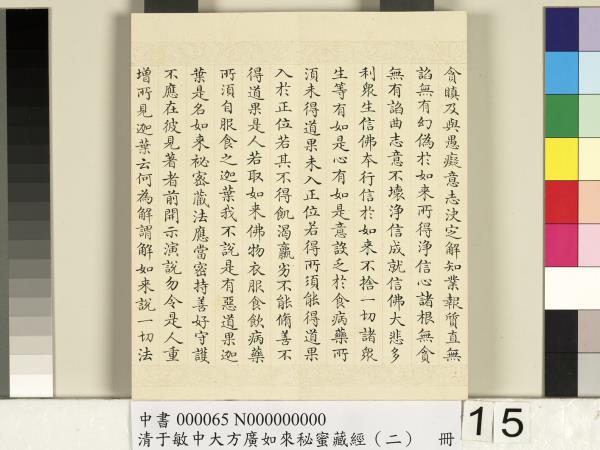 貪瞋及與愚癡意志決定解知業報質直無
諂無有幻偽於如來所得淨信心諸根無貪
無有諂曲志意不壞淨信成就信佛大悲多
利衆生信佛本行信於如來不捨一切諸衆
生等有如是心有如是意設乏於食病藥所
須未得道果未入正位若得所須能得道果
入於正位若其不得飢渴羸劣不能脩善不
得道果是人若取如來佛物衣服食飲病藥
所須自服食之迦葉我不說是有惡道果迦
葉是名如來祕密藏法應當密持善好守護
不應在彼見著者前開示演說勿令是人重
增所見迦葉云何為解謂解如來說一切法
中書 000065 N000000000
清于敏中大方廣如來秘蜜藏經（二） 冊
15